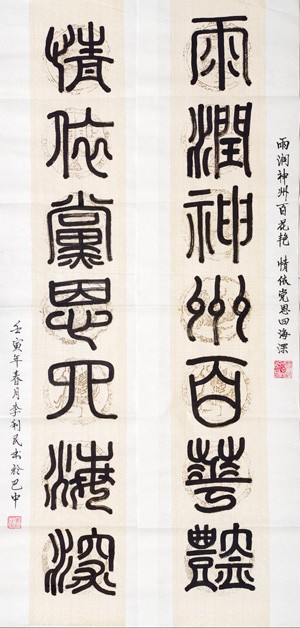 雨润神州百花艳 情依党恩四海深
雨潤神州百華豔
情依黨恩四海深
壬寅年春月李利民书於巴中